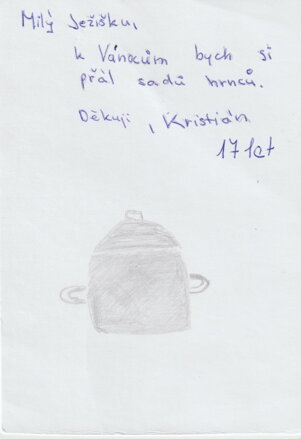 Milý Ježíšku,
k Vánocům bych si
přál sadu hrnců.
Děkuji, Kristián
17 let